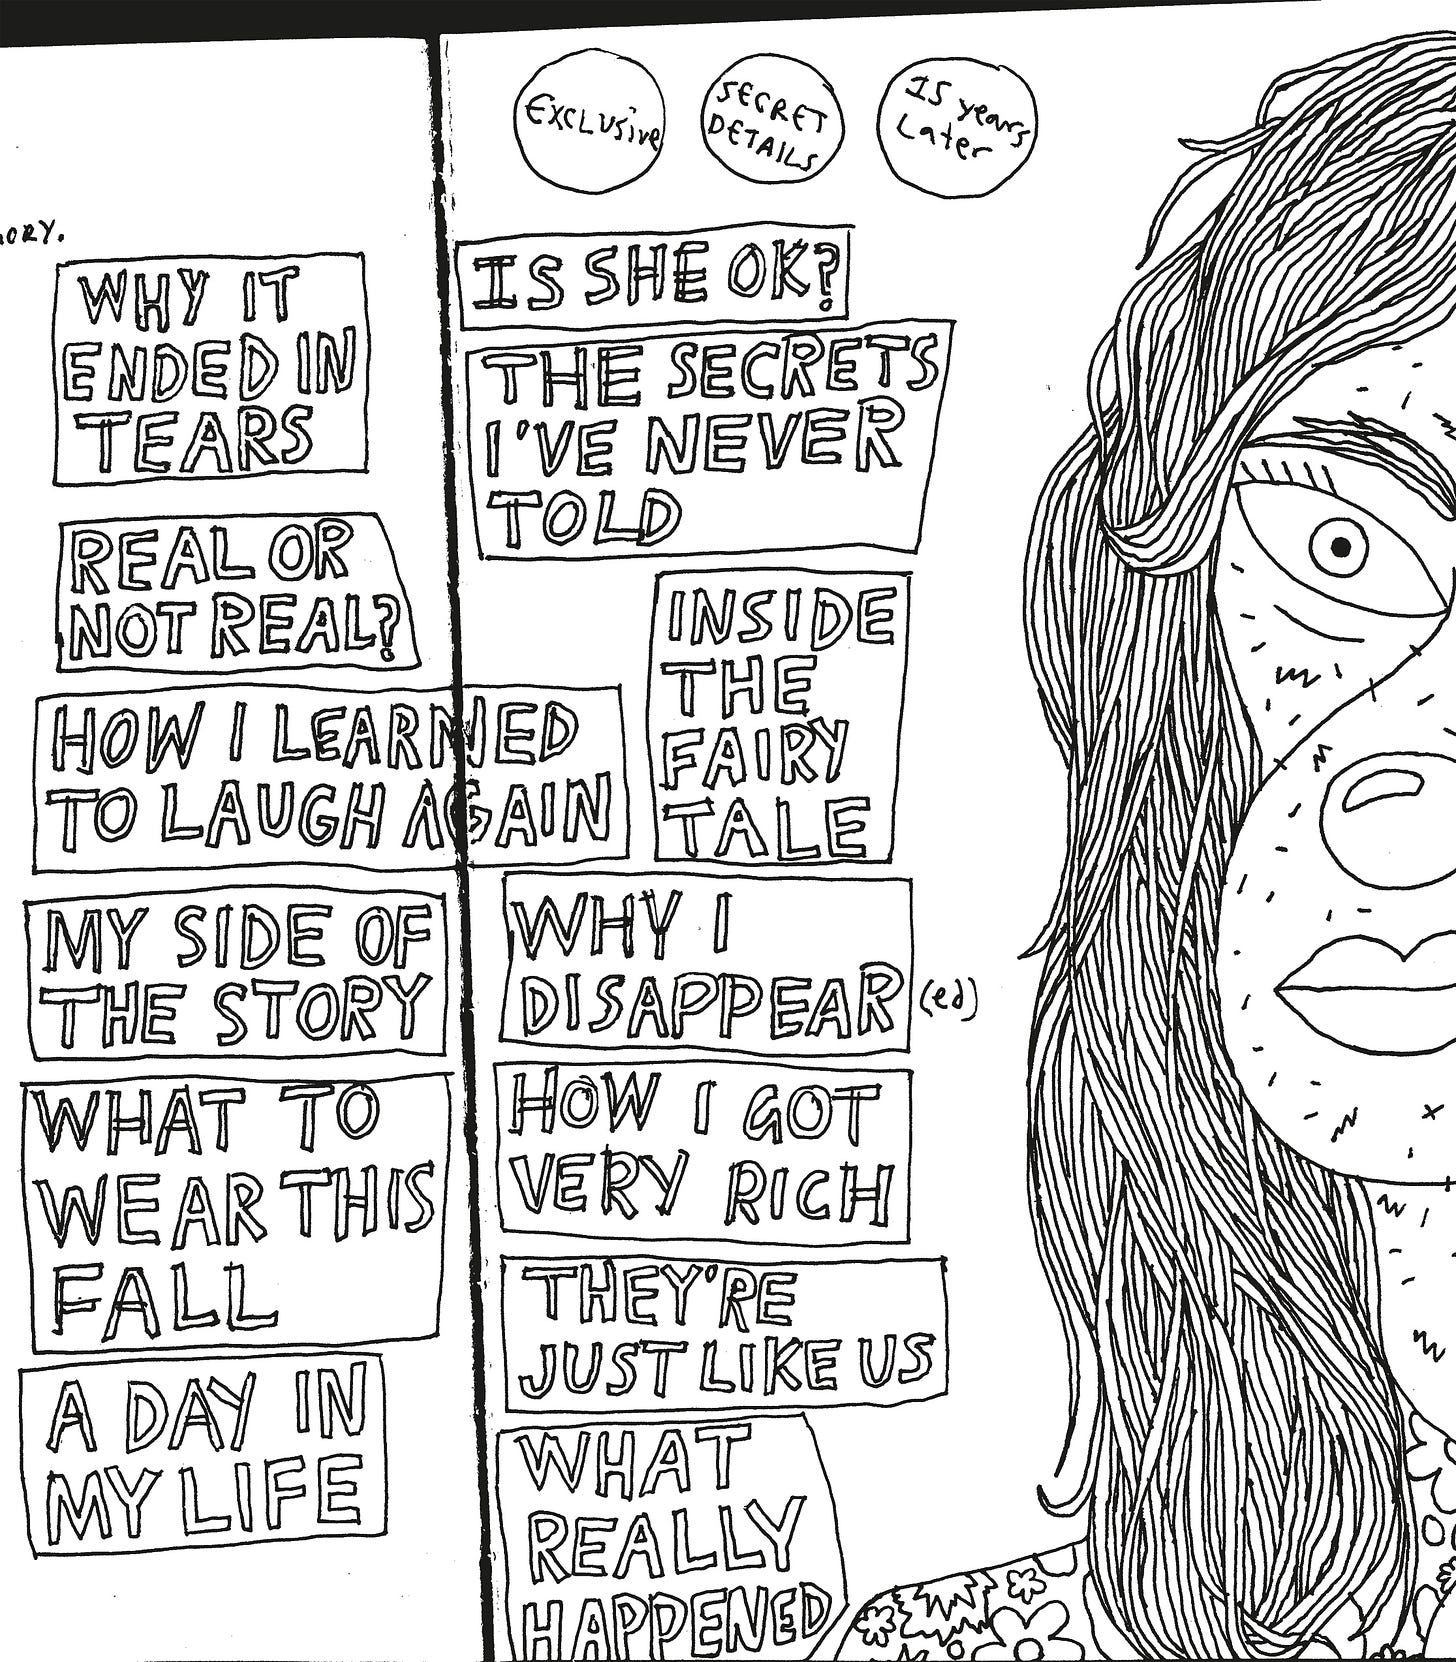 EXCLUSive
SECRET
DETAILS
15 years
Later
WHY IT
ENDED IN
TEARS
REAL OR
NOT REAL?
HOW I LEARNED
TO LAUGH AGAIN
MY SIDE OF
THE STORY
WHAT TO
WEAR THIS
FALL
A DAY IN
MY LIFE
IS SHE OK?
THE SECRETS
I'VE NEVER
TOLD
INSIDE
THE
FAIRY
TALE
WHY I
DISAPPEAR (ed)
HOW I GOT
VERY RICH
THEY'RE
JUST LIKE US
WHAT
REALLY
HAPPENED